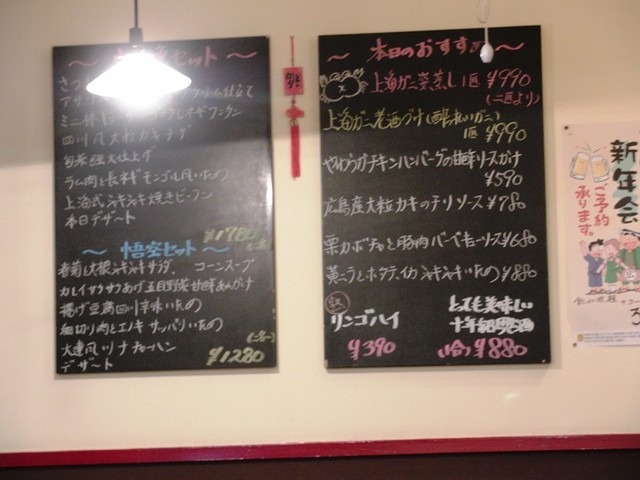 セット
四川風大粒カキチゲ
ラム肉と長ネギモンゴル風いため
上海式シャキシャキ焼きビーフン
本日デザート
¥1980
～悟空セット～
春菊と大根シャキシャキサラダ、コーンスープ
カレイサクサクあげ五目野菜甘酢あんかけ
揚げ豆腐四川辛味いため
細切り肉とエノキサッパリいため
大連風ツナチャーハン
デザート
¥1280
～本日のおすすめ～
上海ガニ姿蒸し1匹 ¥990
(二匹より)
上海ガニ老酒づけ(酔っ払いガニ)
1匹 ¥990
やわらかチキンハンバーグの甘酢ソースがけ
¥590
広島産大粒カキのチリソース ¥780
栗カボチャと豚肉バーベキューソース ¥680
黄ニラとホタテ、イカシャキシャキいため ¥880
リンゴハイ
¥390
とっても美味しい
十年紹興酒
(1合) ¥880
新年会
ご予約
承ります。